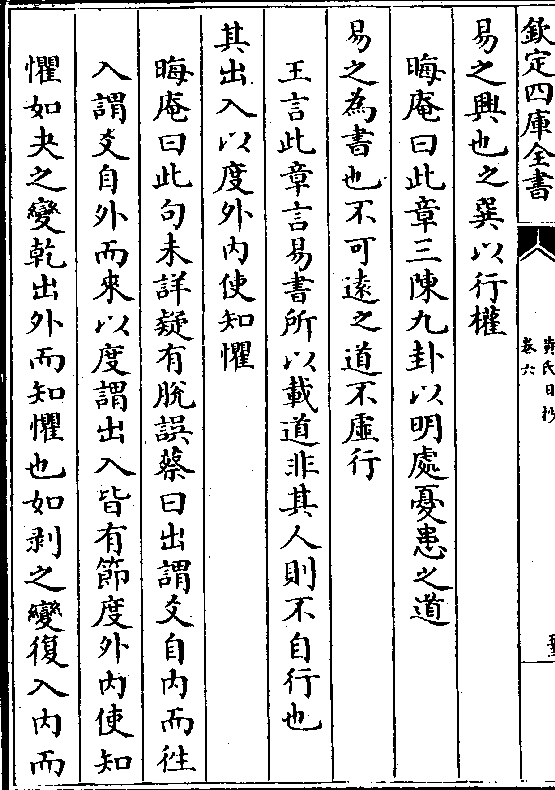 欽定四庫全書
黄氏日抄
卷六
易之興也之巽以行權
晦庵曰此章三陳九卦以明處憂患之道
易之為書也不可逺之道不虛行
王言此章言易書所以載道非其人則不自行也
其出入以度外内使知懼
晦庵曰此句未詳疑有脫誤蔡曰出謂爻自内而徃
入謂爻自外而來以度謂出入皆有節度外内使知
懼如夬之變乾出外而知懼也如剥之變復入内而